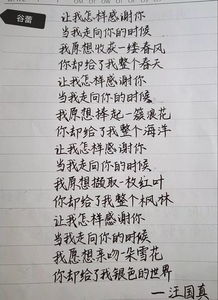 谷蕾
让我怎样感谢你
当我走向你的时候
我原想收获一缕春风
你却给了我整个春天
让我怎样感谢你
当我走向你的时候
我原想捧起一簇浪花
你却给了我整个海洋
让我怎样感谢你
当我走向你的时候
我原想撷取一枚红叶
你却给了我整个枫林
让我怎样感谢你
当我走向你的时候
我原想亲吻一朵雪花
你却给了我银色的世界
——汪国真